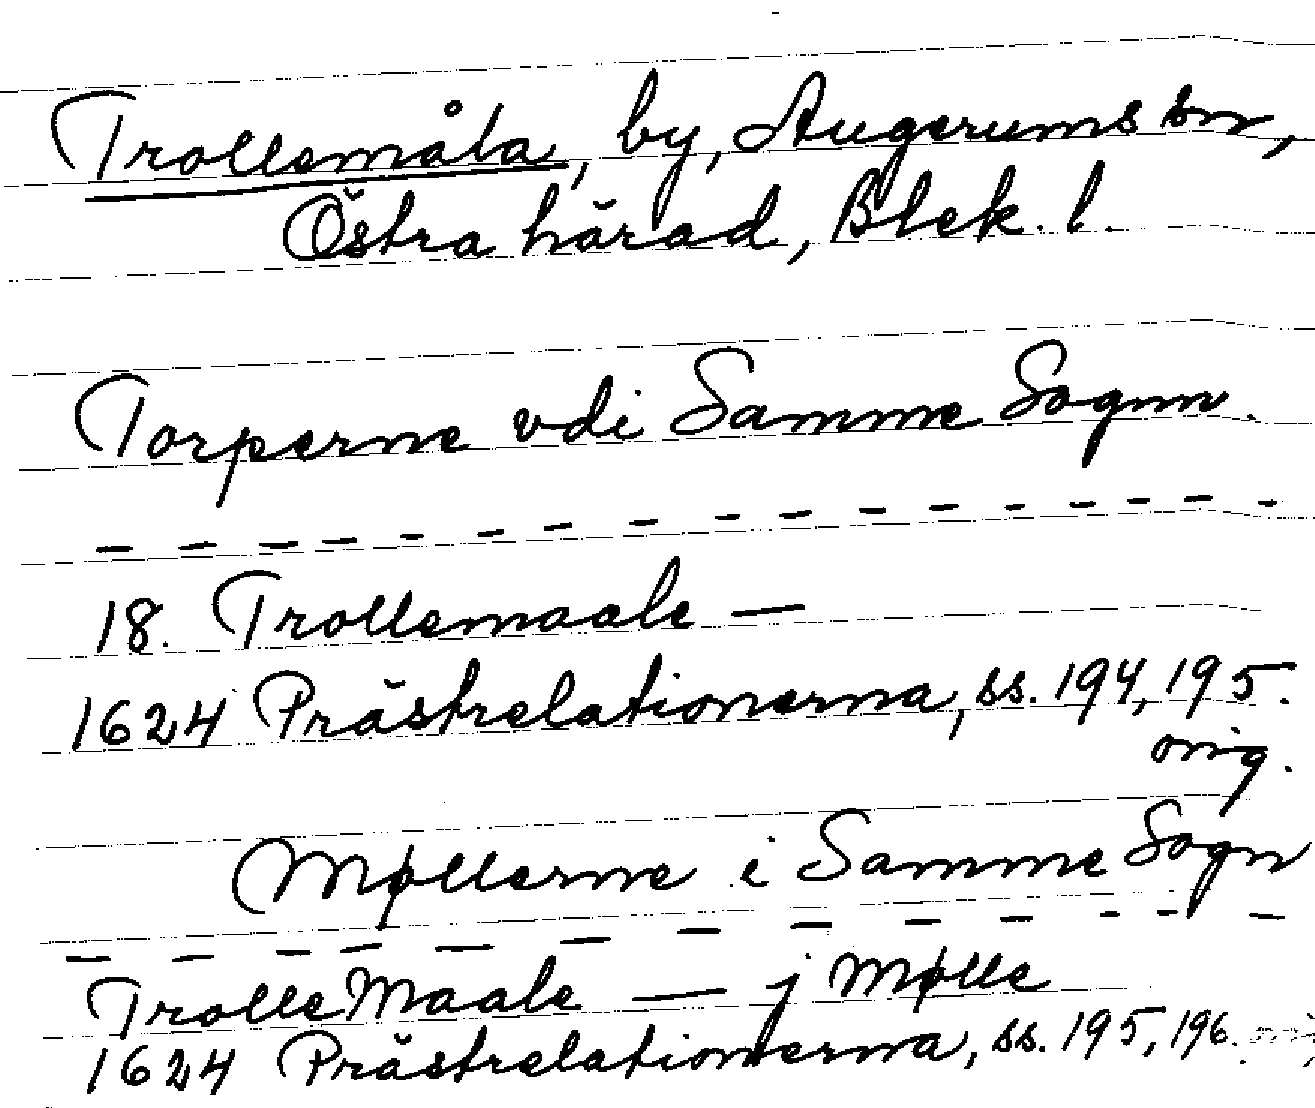 Trollemåla, by, Augerums sn,
Östra härad, Blek. l.
Torperne vdi Samme Sognn.
— — — — — — — — — — — — — — — —
18. Trollemaale —
1624 Prästrelationerna, ss. 194, 195.
orig.
Møllerne i Samme Sogn
— — — — — — — — — — — —
TrolleMaale — j Mølle
1624 Prästrelationerna, ss. 195, 196.